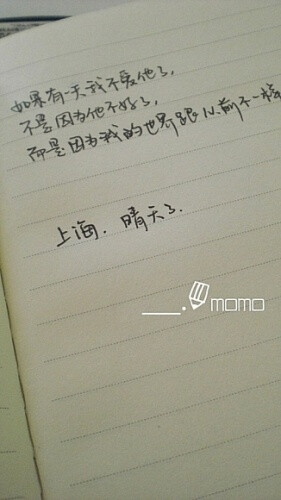 如果有一天我不爱他了,
不是因为他不好了,
而是因为我的世界跟从前不一样
上海. 晴天了.
____.momo